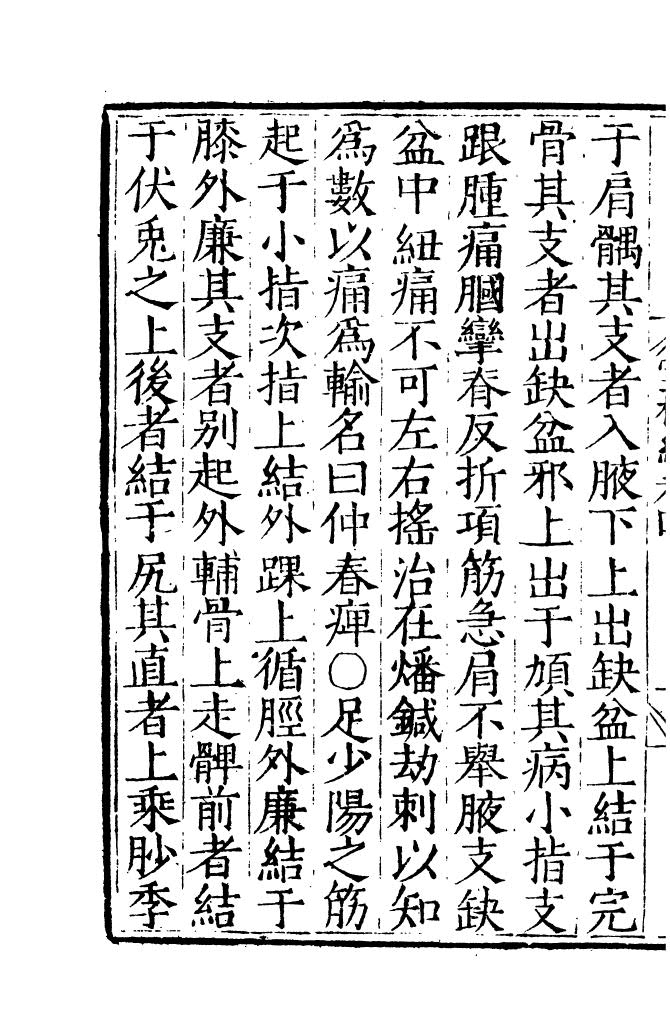 于肩髃其支者入腋下上出缺盆上結于完
骨其支者出缺盆邪上出于頄其病小指支
跟腫痛膕攣脊反折項筋急肩不舉腋支缺
盆中紐痛不可左右搖治在燔鍼劫刺以知
爲數以痛爲輸名曰仲春痺〇足少陽之筋
起于小指次指上結外踝上循脛外廉結于
膝外廉其支者别起外輔骨上走髀前者結
于伏兎之上後者結于尻其直者上乘䏚季